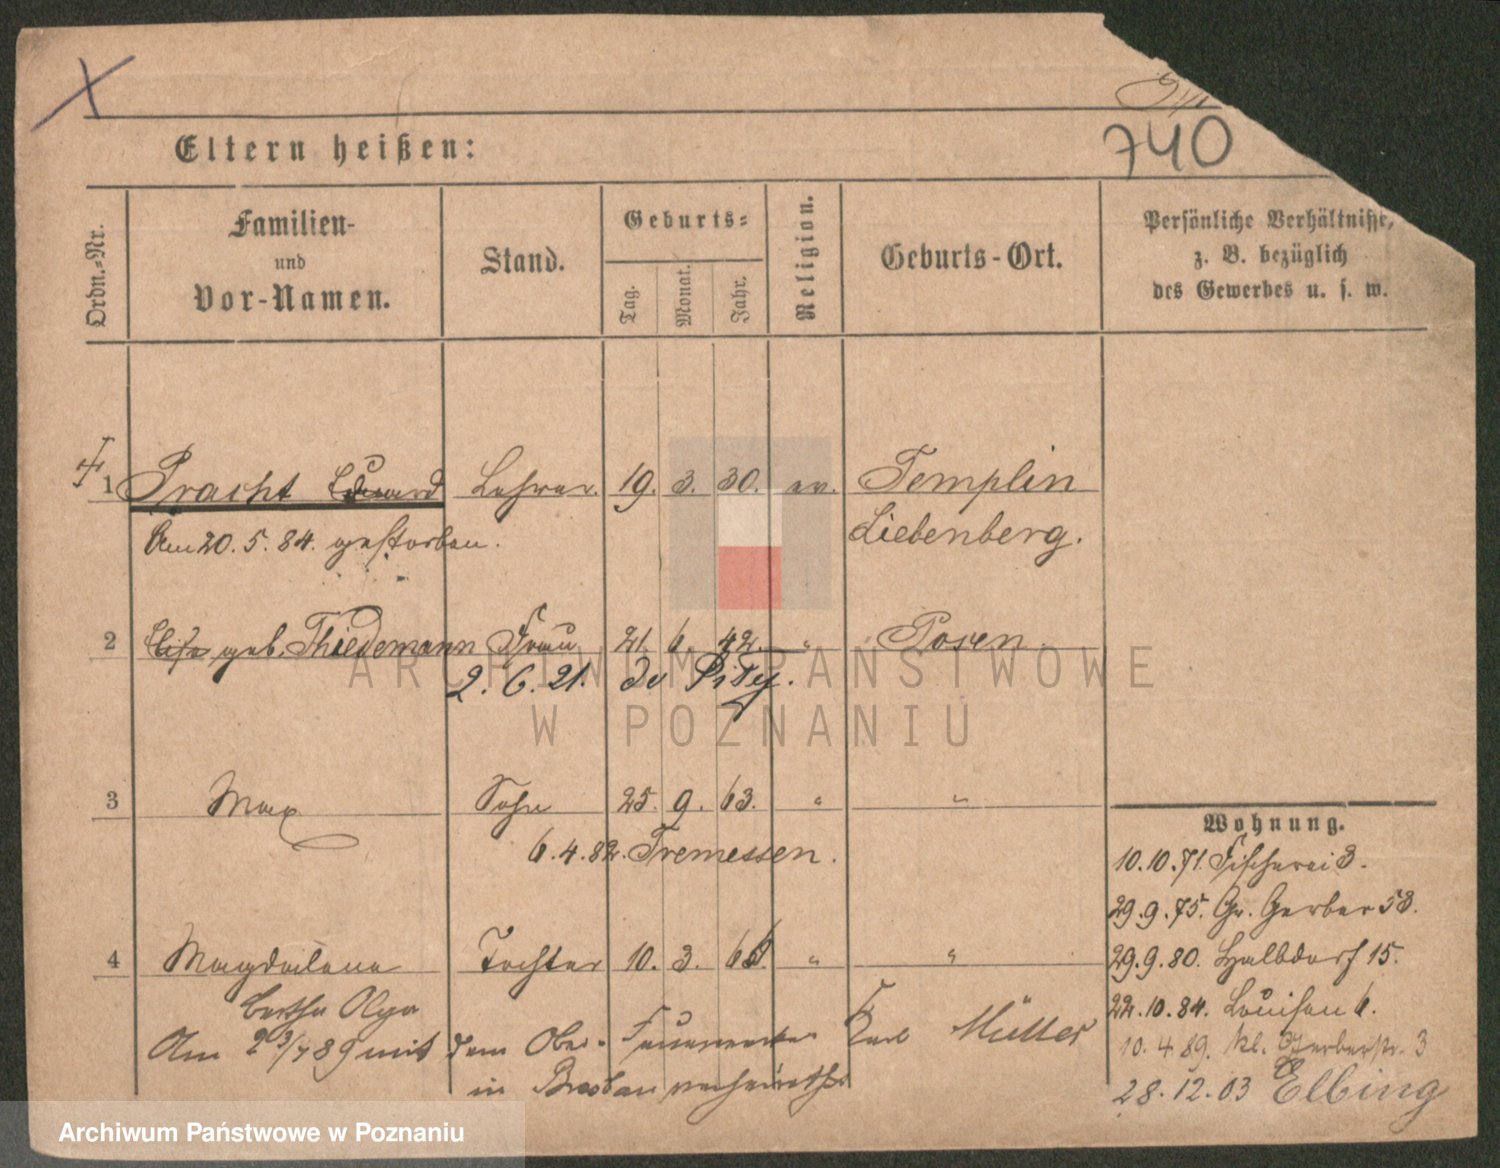 740
Eltern heißen:
Ordn.-Nr.
Familien-
und
Vor-Namen.
Stand.
Geburts-
Tag.
Monat.
Jahr.
Religion.
Geburts-Ort.
Persönliche Verhältnisse,
z. B. bezüglich
des Gewerbes u. s. w.
1 Pracht Eduard Lehrer. 19. 3. 30. ev. Templin
Am 20. 5. 84. gestorben. Liebenberg.
2 geb. Thiedemann Frau 21. 6. 42. " Posen
2. 6. 21.
3 Max Sohn 25. 9. 63. " "
6. 4. 82. Tremessen.
4 Magdalena Tochter 10. 3. " "
Bertha Olga
Am mit dem Ober- Feuerwerker Karl Müller
in Breslau verheirathet
Wohnung.
10. 10. 71. Fischerei 3.
29. 9. 75. Gr. Gerber 53.
29. 9. 80. Halbdorf 15.
22. 10. 84. Louisen 6.
10. 4 89. kl. Gerberstr. 3
28. 12. 03 Elbing
ARCHIWUM PAŃSTWOWE
W POZNANIU
Archiwum Państwowe w Poznaniu